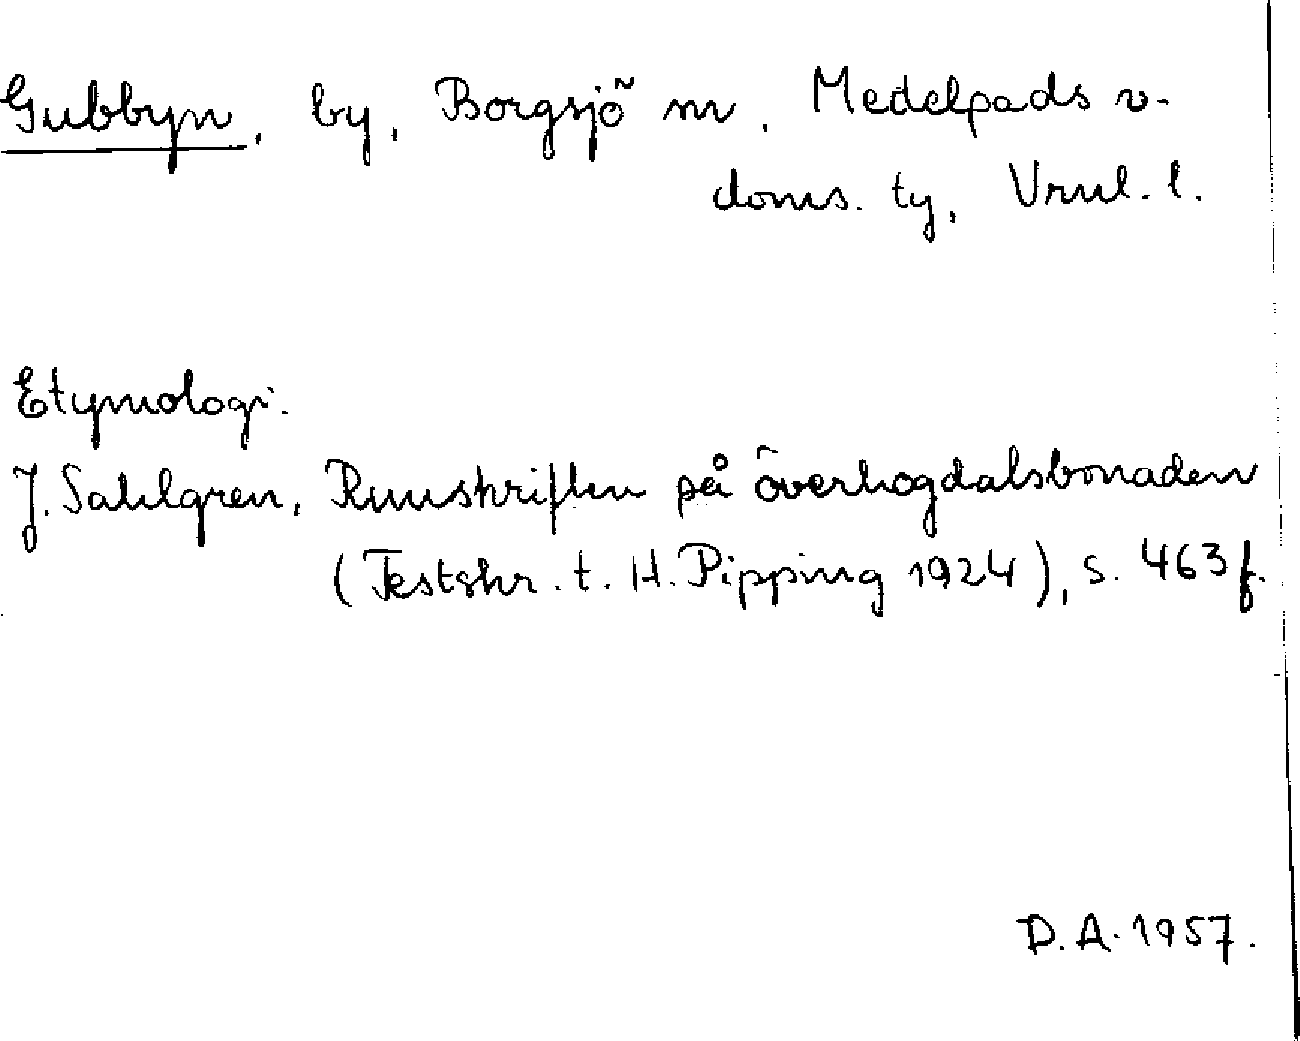 Gubbyn, by, Borgsjö sn, Medelpads v.
doms. tg, Vrnl. l.
Etymologi.
J. Sahlgren, Runskriften på överhogdalsbonaden
(Festskr. t. H. Pipping 1924), s. 463 f.
D. A. 1957.